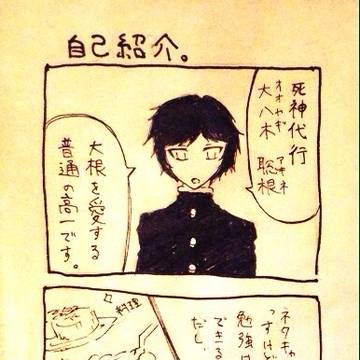 自己紹介。
死神代行
オオヤギ
大八木
アキネ
聡根
大根を愛する
普通の高一です。
ネタキャ
っすけど
勉強は
できる
だし、
料理